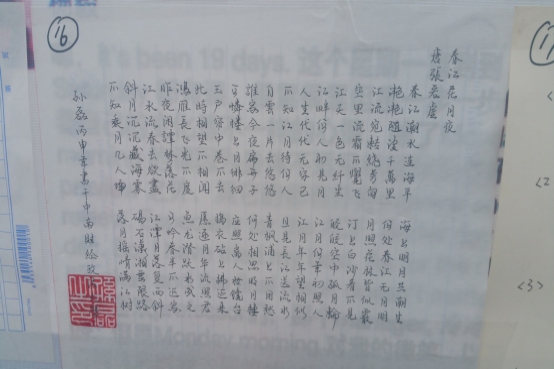 16
It's been 19 days. 这个
春江花月夜
唐張若虛
春江潮水連海平 海上明月共潮生
灧灧隨波千萬里 何处春江无月明
江流宛轉繞芳甸 月照花林皆似霰
空里流霜不覺飛 汀上白沙看不見
江天一色无纤尘 皎皎空中孤月輪
江畔何人初見月 江月何年初照人
人生代代无窮已 江月年年望相似
不知江月待何人 但見長江送流水
白雲一片去悠悠 青楓浦上不勝愁
誰家今夜扁舟子 何処相思明月樓
可憐樓上月徘徊 應照离人妝鏡台
玉户簾中卷不去 搗衣砧上拂還來
此時相望不相聞 願逐月華流照君
鴻雁長飛光不度 魚龍潛躍水成文
昨夜閒潭夢落花 可怜春半不還家
江水流春去欲盡 江潭落月復西斜
斜月沉沉藏海霧 碣石瀟湘無限路
不知乘月几人歸 落月搖情滿江樹
孙磊丙申季書于中南財經政
Monday morning
<2>
<3>